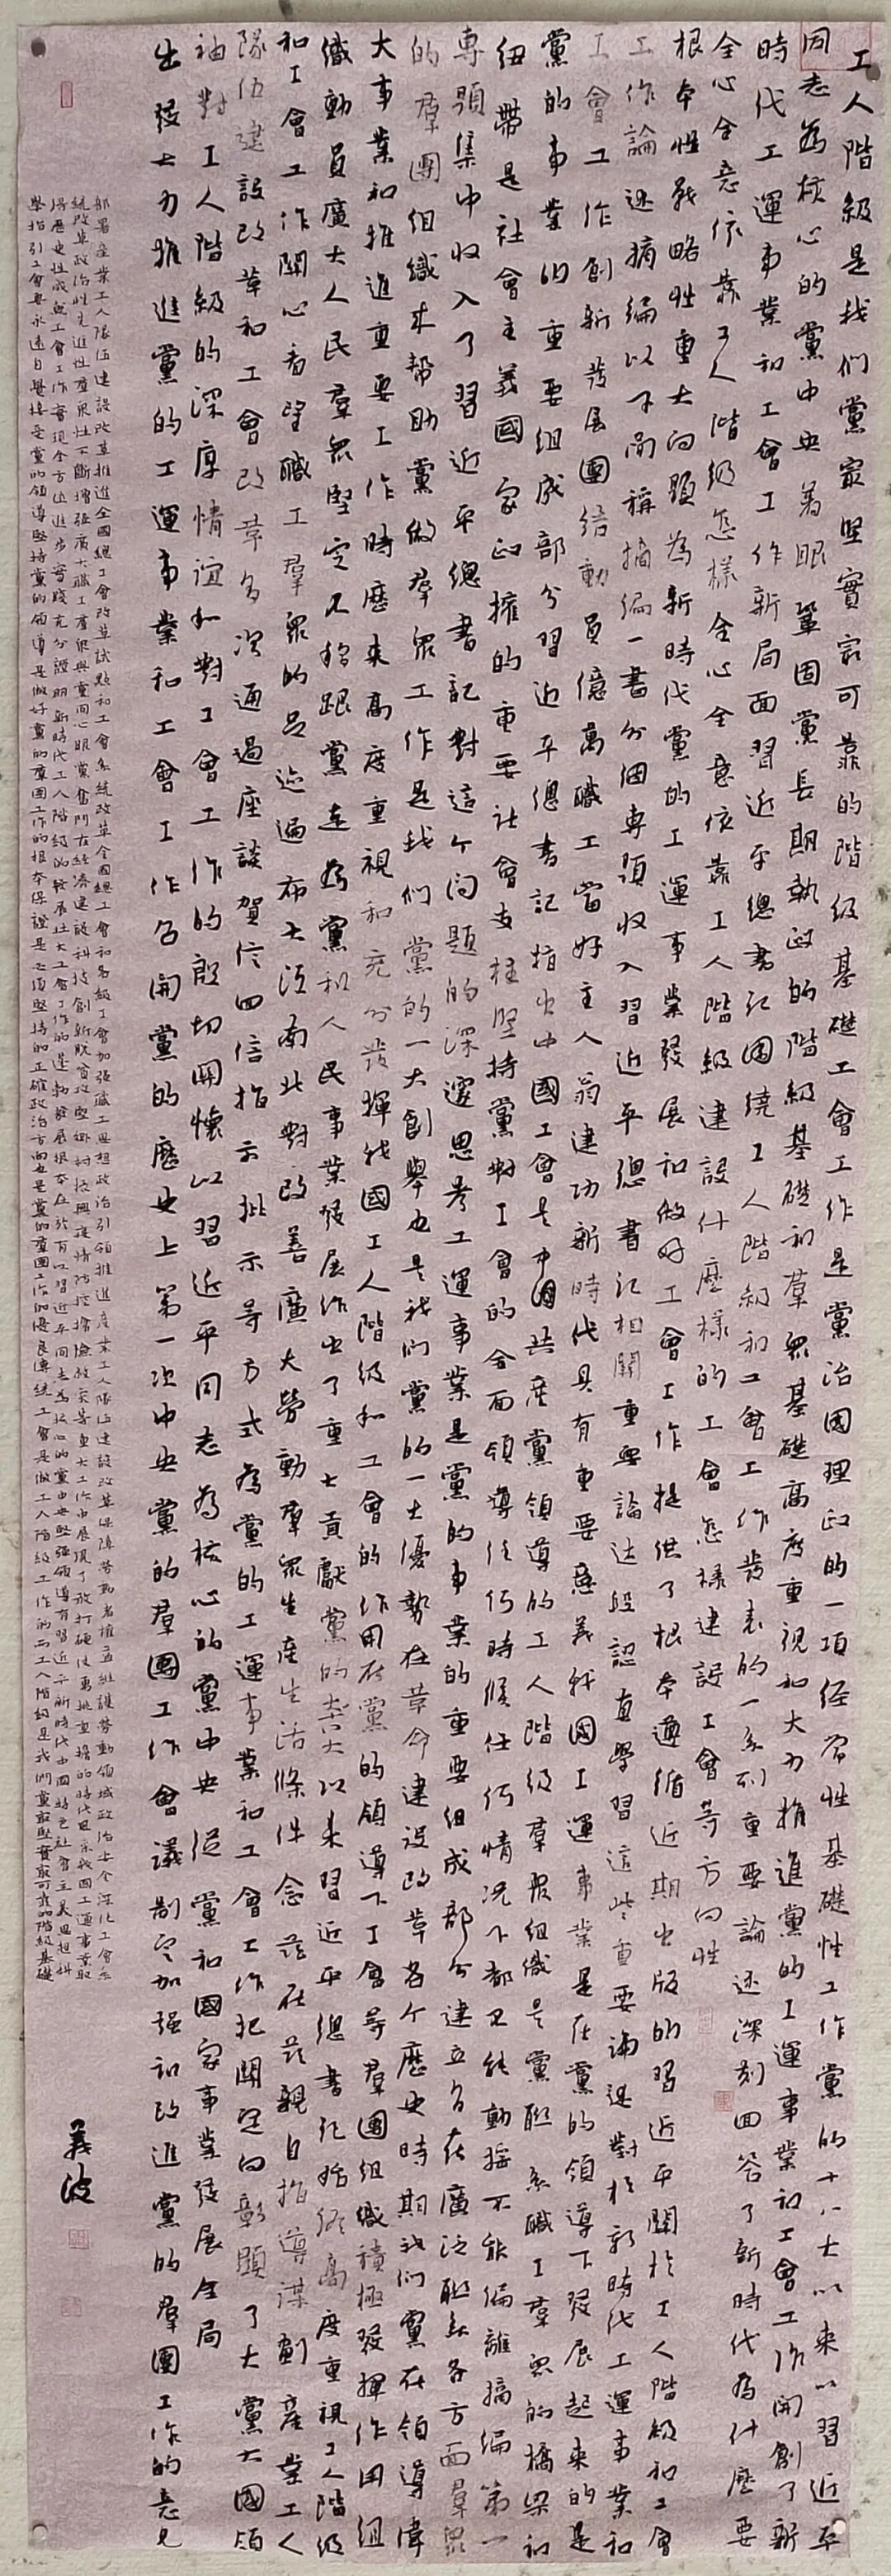 工人階級是我們黨最堅實最可靠的階級基礎工會工作是黨治國理政的一項經常性基礎性工作黨的十八大以來以習近平
同志為核心的黨中央着眼鞏固黨長期執政的階級基礎和羣眾基礎高度重視和大力推進黨的工運事業和工會工作開創了新
時代工運事業和工會工作新局面習近平總書記圍繞工人階級和工會工作發表的一系列重要論述深刻回答了新時代為什麼要
全心全意依靠工人階級怎樣全心全意依靠工人階級建設什麼樣的工會怎樣建設工會等方向性
根本性戰略性重大問題為新時代黨的工運事業發展和做好工會工作提供了根本遵循近期出版的習近平關於工人階級和工會
工作論述摘編以下簡稱摘編一書分個專題收入習近平總書記相關重要論述段認真學習這些重要論述對於新時代工運事業和
工會工作創新發展團結動員億萬職工當好主人翁建功新時代具有重要意義我國工運事業是在黨的領導下發展起來的是
黨的事業的重要組成部分習近平總書記指出中國工會是中國共產黨領導的工人階級羣眾組織是黨聯系職工羣眾的橋梁和
紐帶是社會主義國家政權的重要社會支柱堅持黨對工會的全面領導任何時候任何情況下都不能動搖不能偏離摘編第一
專題集中收入了習近平總書記對這个問題的深邃思考工運事業是黨的事業的重要組成部分建立旨在廣泛聯系各方面羣眾
的羣團組織來幫助黨做羣眾工作是我們黨的一大創舉也是我們黨的一大優勢在革命建設改革各个歷史時期我們黨在領導偉
大事業和推進重要工作時歷來高度重視和充分發揮我國工人階級和工會的作用在黨的領導下工會等羣團組織積極發揮作用組
織動員廣大人民羣眾堅定不移跟黨走為黨和人民事業發展作出了重大貢獻黨的十八大以來習近平總書記始終高度重視工人階級
和工會工作關心看望職工羣眾的足迹遍布大江南北對改善廣大勞動羣眾生產生活條件念茲在茲親自指導謀劃產業工人
隊伍建設改革和工會改革多次通過座談賀信回信指示批示等方式為黨的工運事業和工會工作把關定向彰顯了大黨大國領
袖對工人階級的深厚情誼和對工會工作的殷切關懷以習近平同志為核心的黨中央從黨和國家事業發展全局
出發大力推進黨的工運事業和工會工作召開黨的歷史上第一次中央黨的羣團工作會議制定加強和改進黨的羣團工作的意見
部署產業工人隊伍建設改革推進全國總工會改革試點和工會系統改革全國總工會和各級工會加強職工思想政治引領推進產業工人隊伍建設改革保障勞動者權益維護勞動領域政治安全深化工會系
統改革政治性先進性羣眾性不斷增強廣大職工羣眾與黨同心跟黨奮鬥在經濟建設科技創新脫貧攻堅鄉村振興疫情防控搶險救災等重大工作中展現了敢打硬仗勇挑重擔的時代風采我國工運事業取
得歷史性成就工會工作實現全方位進步實踐充分證明新時代工人階級的發展壯大工會工作的蓬勃發展根本在於有以習近平同志為核心的黨中央堅強領導有習近平新時代中國特色社會主義思想科
學指引工會要永遠自覺接受黨的領導堅持黨的領導是做好黨的羣團工作的根本保證是必須堅持的正確政治方向也是黨的羣團工作的優良傳統工會是做工人階級工作的而工人階級是我們黨最堅實最可靠的階級基礎
義波